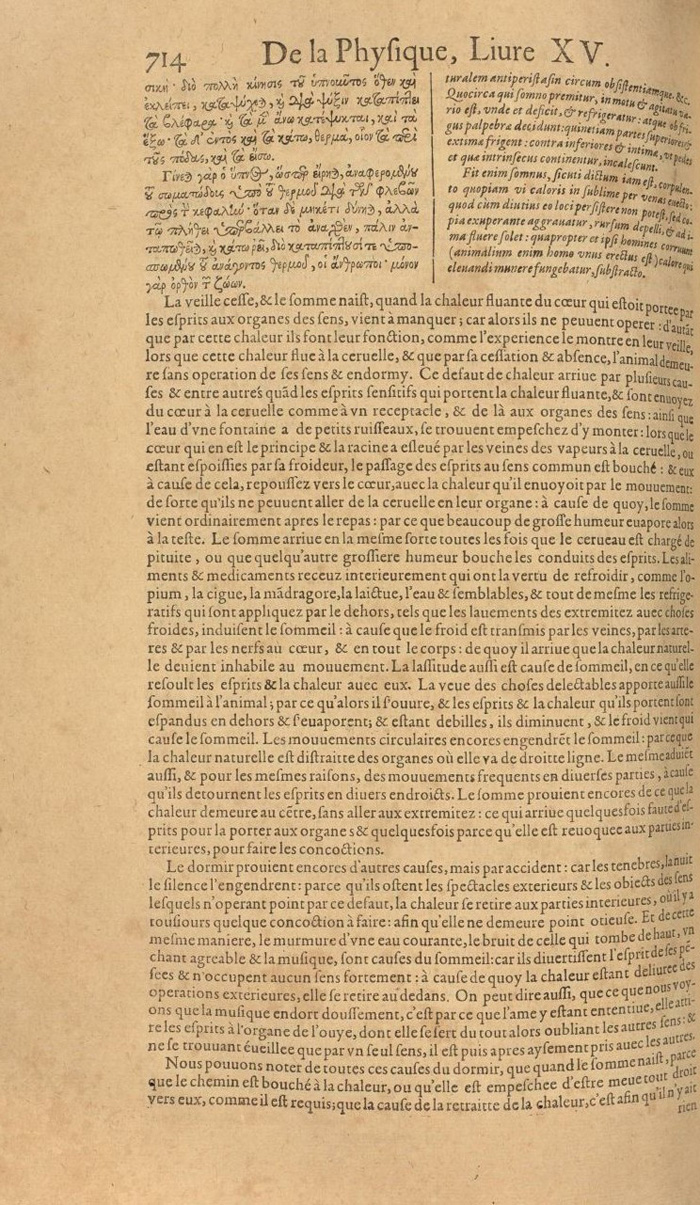 714 De la Phyſique, Liure XV.
σική· διὸ πολλὴ κίνησις τοῦ ὑπνοῦντος ὅθεν καὶ
ἐκλείπει, καὶ καταψύχεται, καὶ διὰ ψύξιν καταπίπτει
τὰ βλέφαρα· καὶ τὰ μὲν ἄνω κατέψυκται, καὶ τὰ
ἔξω· τὰ δ' ἐντὸς καὶ τὰ κάτω, θερμὰ, οἷον τὰ περὶ
τοὺς πόδας, καὶ τὰ εἴσω.
Γίνεται γὰρ ὁ ὕπνος, ὥσπερ εἴρηται, ἀναφερομένου
τοῦ σωματώδους ὑπὸ τοῦ θερμοῦ διὰ τῶν φλεβῶν
πρὸς τὴν κεφαλὴν· ὅταν δὲ μηκέτι δύνηται, ἀλλὰ
τῷ πλήθει ὑπερβάλλει τὸ ἀναχθὲν, πάλιν ἀν-
ταπωθεῖται, καὶ κάτω ῥεῖ, διὸ καταπίπτουσί τε ὑπο-
σπωμένου τοῦ ἀνάγοντος θερμοῦ, οἱ ἄνθρωποι· μόνον
γὰρ ὀρθὸν τῶν ζώων.
turalem antiperiſtaſin circum obſiſtentiamque. &c.
Quocirca qui ſomno premitur, in motu & agitatu va-
rio eſt, vnde et deficit, & refrigeratur: atque ob fri-
gus palpebræ decidunt: quinetiam partes ſuperiores &
extimæ frigent: contra inferiores & intimæ, vt pedes
et quæ intrinſecus continentur, incaleſcunt.
Fit enim ſomnus, ſicuti dictum iam eſt, corpulen-
to quopiam vi caloris in ſublime per venas euecto:
quod cum diutius eo loci perſiſtere non poteſt, ſed co-
pia exuperante aggrauatur, rurſum depelli, & ad i-
ma fluere ſolet: quapropter et ipſi homines corruunt
(animalium enim homo vnus erectus eſt) calore qui
eleuandi munere fungebatur, ſubſtracto.
La veille ceſſe, & le ſomme naiſt, quand la chaleur fluante du cœur qui eſtoit portee par
les eſprits aux organes des ſens, vient à manquer; car alors ils ne peuuent operer: d'autāt
que par cette chaleur ils font leur fonction, comme l'experience le montre en leur veille,
lors que cette chaleur flue à la ceruelle, & que par ſa ceſſation & abſence, l'animal demeu-
re ſans operation de ſes ſens & endormy. Ce defaut de chaleur arriue par pluſieurs cau-
ſes & entre autres quād les eſprits ſenſitifs qui portent la chaleur fluante, & ſont enuoyez
du cœur à la ceruelle comme à vn receptacle, & de là aux organes des ſens: ainſi que
l'eau d'vne fontaine a de petits ruiſſeaux, ſe trouuent empeſchez d'y monter: lors que le
cœur qui en eſt le principe & la racine a eſleué par les veines des vapeurs à la ceruelle, ou
eſtant eſpoiſſies par ſa froideur, le paſſage des eſprits au ſens commun eſt bouché: & eux
à cauſe de cela, repouſſez vers le cœur, auec la chaleur qu'il enuoyoit par le mouuement:
de ſorte qu'ils ne peuuent aller de la ceruelle en leur organe: à cauſe de quoy, le ſomme
vient ordinairement apres le repas: par ce que beaucoup de groſſe humeur euapore alors
à la teſte. Le ſomme arriue en la meſme ſorte toutes les fois que le cerueau eſt chargé de
pituite, ou que quelqu'autre groſſiere humeur bouche les conduits des eſprits. Les ali-
ments & medicaments receuz interieurement qui ont la vertu de refroidir, comme l'o-
pium, la cigue, la mādragore, la laictue, l'eau & ſemblables, & tout de meſme les refrige-
ratifs qui ſont appliquez par le dehors, tels que les lauements des extremitez auec choſes
froides, induiſent le ſommeil: à cauſe que le froid eſt tranſmis par les veines, par les arte-
res & par les nerfs au cœur, & en tout le corps: de quoy il arriue que la chaleur naturel-
le deuient inhabile au mouuement. La laſſitude auſſi eſt cauſe de ſommeil, en ce qu'elle
reſoult les eſprits & la chaleur auec eux. La veue des choſes delectables apporte auſſi le
ſommeil à l'animal; par ce qu'alors il s'ouure, & les eſprits & la chaleur qu'ils portent ſont
eſpandus en dehors & s'euaporent; & eſtant debilles, ils diminuent, & le froid vient qui
cauſe le ſommeil. Les mouuements circulaires encores engendrēt le ſommeil: par ce que
la chaleur naturelle eſt diſtraitte des organes où elle va de droitte ligne. Le meſme aduiēt
auſſi, & pour les meſmes raiſons, des mouuements frequents en diuerſes parties, à cauſe
qu'ils detournent les eſprits en diuers endroicts. Le ſomme prouient encores de ce que la
chaleur demeure au cētre, ſans aller aux extremitez: ce qui arriue quelquesfois faute d'eſ-
prits pour la porter aux organes & quelquesfois parce qu'elle eſt reuoquee aux parties in-
terieures, pour faire les concoctions.
Le dormir prouient encores d'autres cauſes, mais par accident: car les tenebres, la nuit
le ſilence l'engendrent: parce qu'ils oſtent les ſpectacles exterieurs & les obiects des ſens
leſquels n'operant point par ce defaut, la chaleur ſe retire aux parties interieures, où il y a
touſiours quelque concoction à faire: afin qu'elle ne demeure point otieuſe. Et de cette
meſme maniere, le murmure d'vne eau courante, le bruit de celle qui tombe de haut, vn
chant agreable & la muſique, ſont cauſes du ſommeil: car ils diuertiſſent l'eſprit de ſes pē-
ſees & n'occupent aucun ſens fortement: à cauſe de quoy la chaleur eſtant deliuree des
operations exterieures, elle ſe retire au dedans. On peut dire auſſi, que ce que nous voy-
ons que la muſique endort douſſement, c'eſt par ce que l'ame y eſtant ententiue, elle atti-
re les eſprits à l'organe de l'ouye, dont elle ſe ſert du tout alors oubliant les autres ſens: &
ne ſe trouuant éueillee que par vn ſeul ſens, il eſt puis apres ayſement pris auec les autres.
Nous pouuons noter de toutes ces cauſes du dormir, que quand le ſomme naiſt, parce
que le chemin eſt bouché à la chaleur, ou qu'elle eſt empeſchee d'eſtre meue tout droit
vers eux, comme il eſt requis; que la cauſe de la retraitte de la chaleur, c'eſt afin qu'il n'y ait
rien